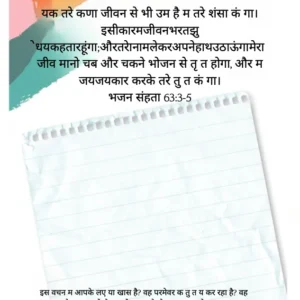 यक तरे कणा जीवन से भी उम है म तरे शंसा कं गा।
इसीकारमजीवनभरतझु
ेधयकहतारहूंगा;औरतेरानामलेकरअपनेहाथउठाऊंगामेरा
जीव मानो चब और चकने भोजन से तृ त होगा, और म
जयजयकार करके तरे तु त कं गा।
भजन संहता 63:3-5
इस वचन म आपके लए या खास है? वह परमेवर क तु त य कर रहा है? वह